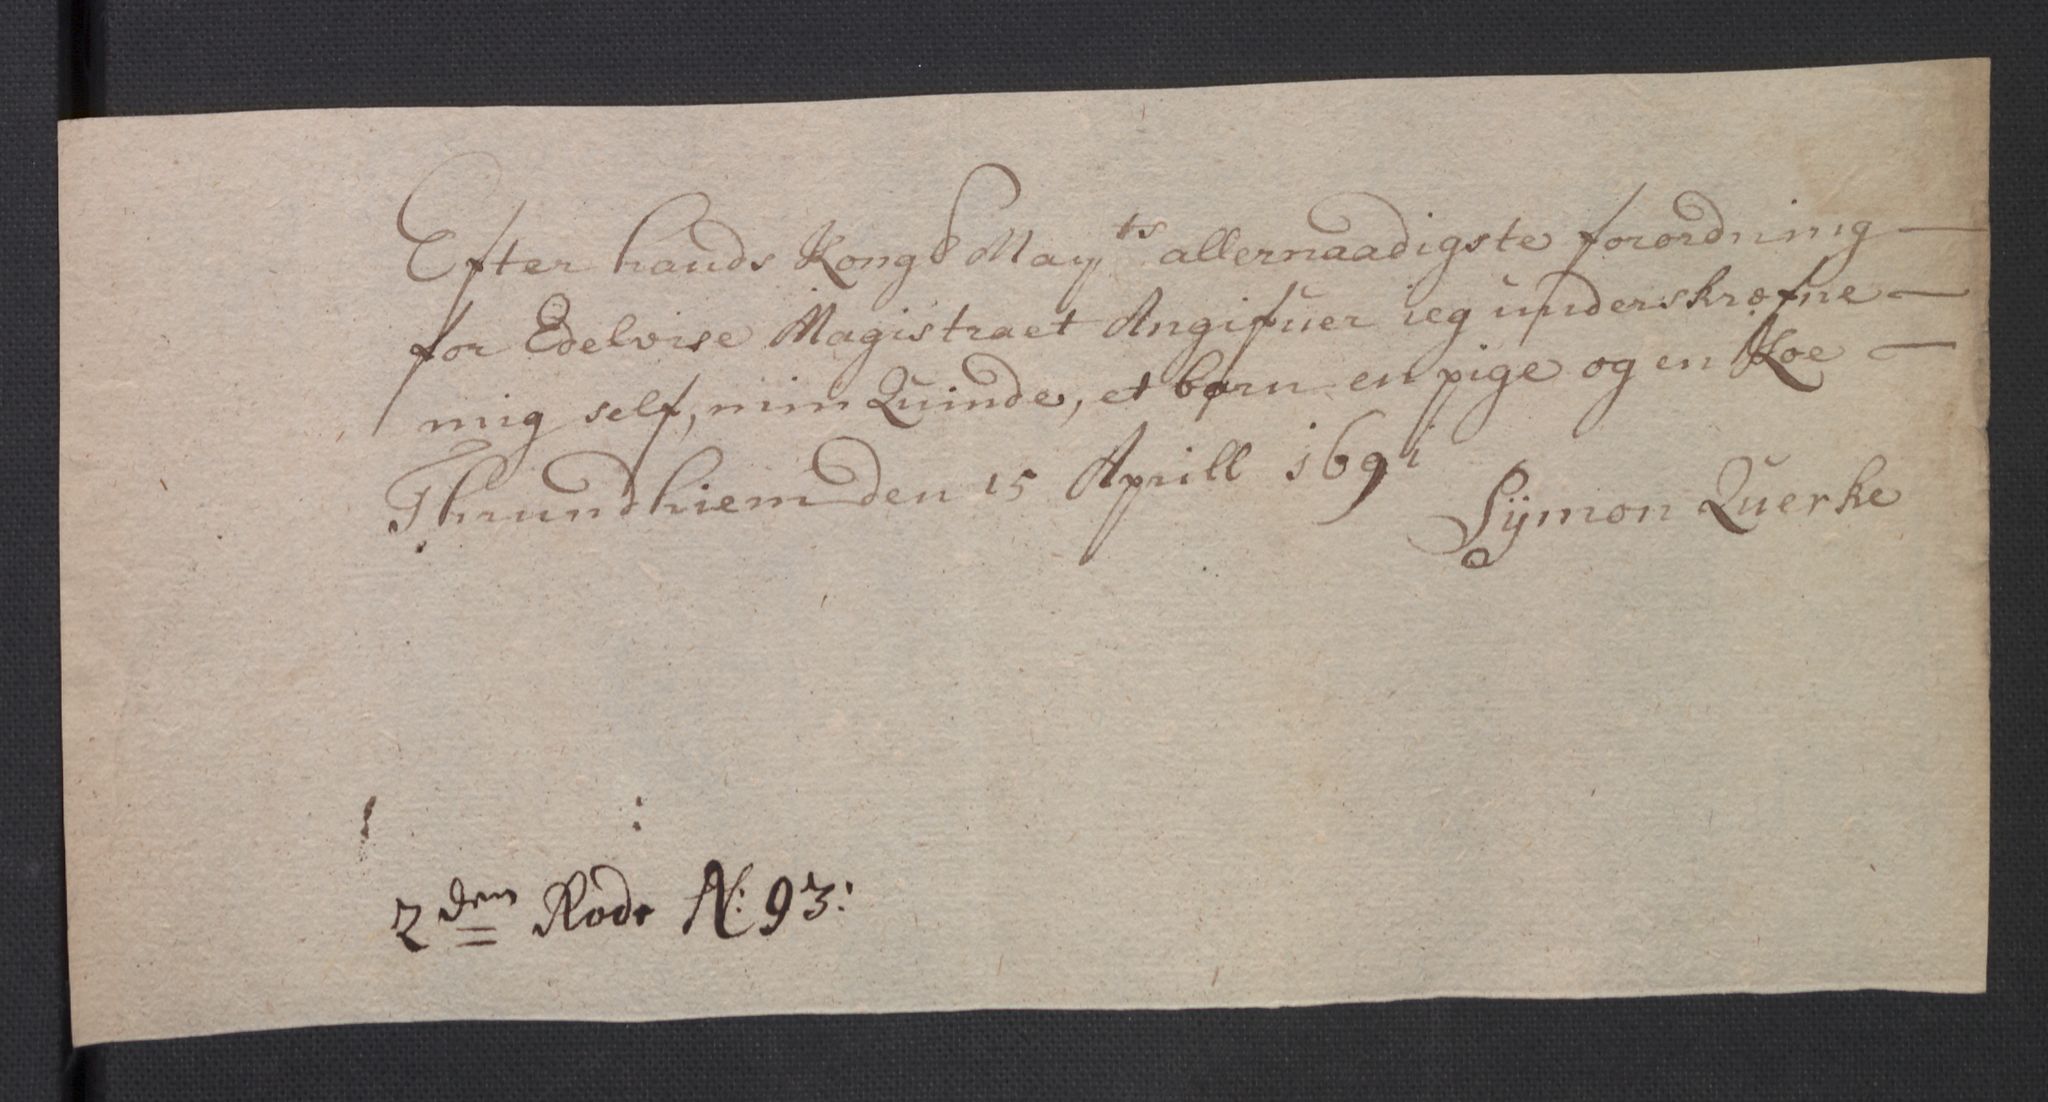 Efter hands Kongl Mayts allernaadigste forordning
for Edelvise Magistraet Angifuer ieg underskrefne
mig self, min Quinde, et børn en pige og en Koe
Thrundhiem den 15 Aprill 1691
Sÿmon Querke
2den Rode N: 93: